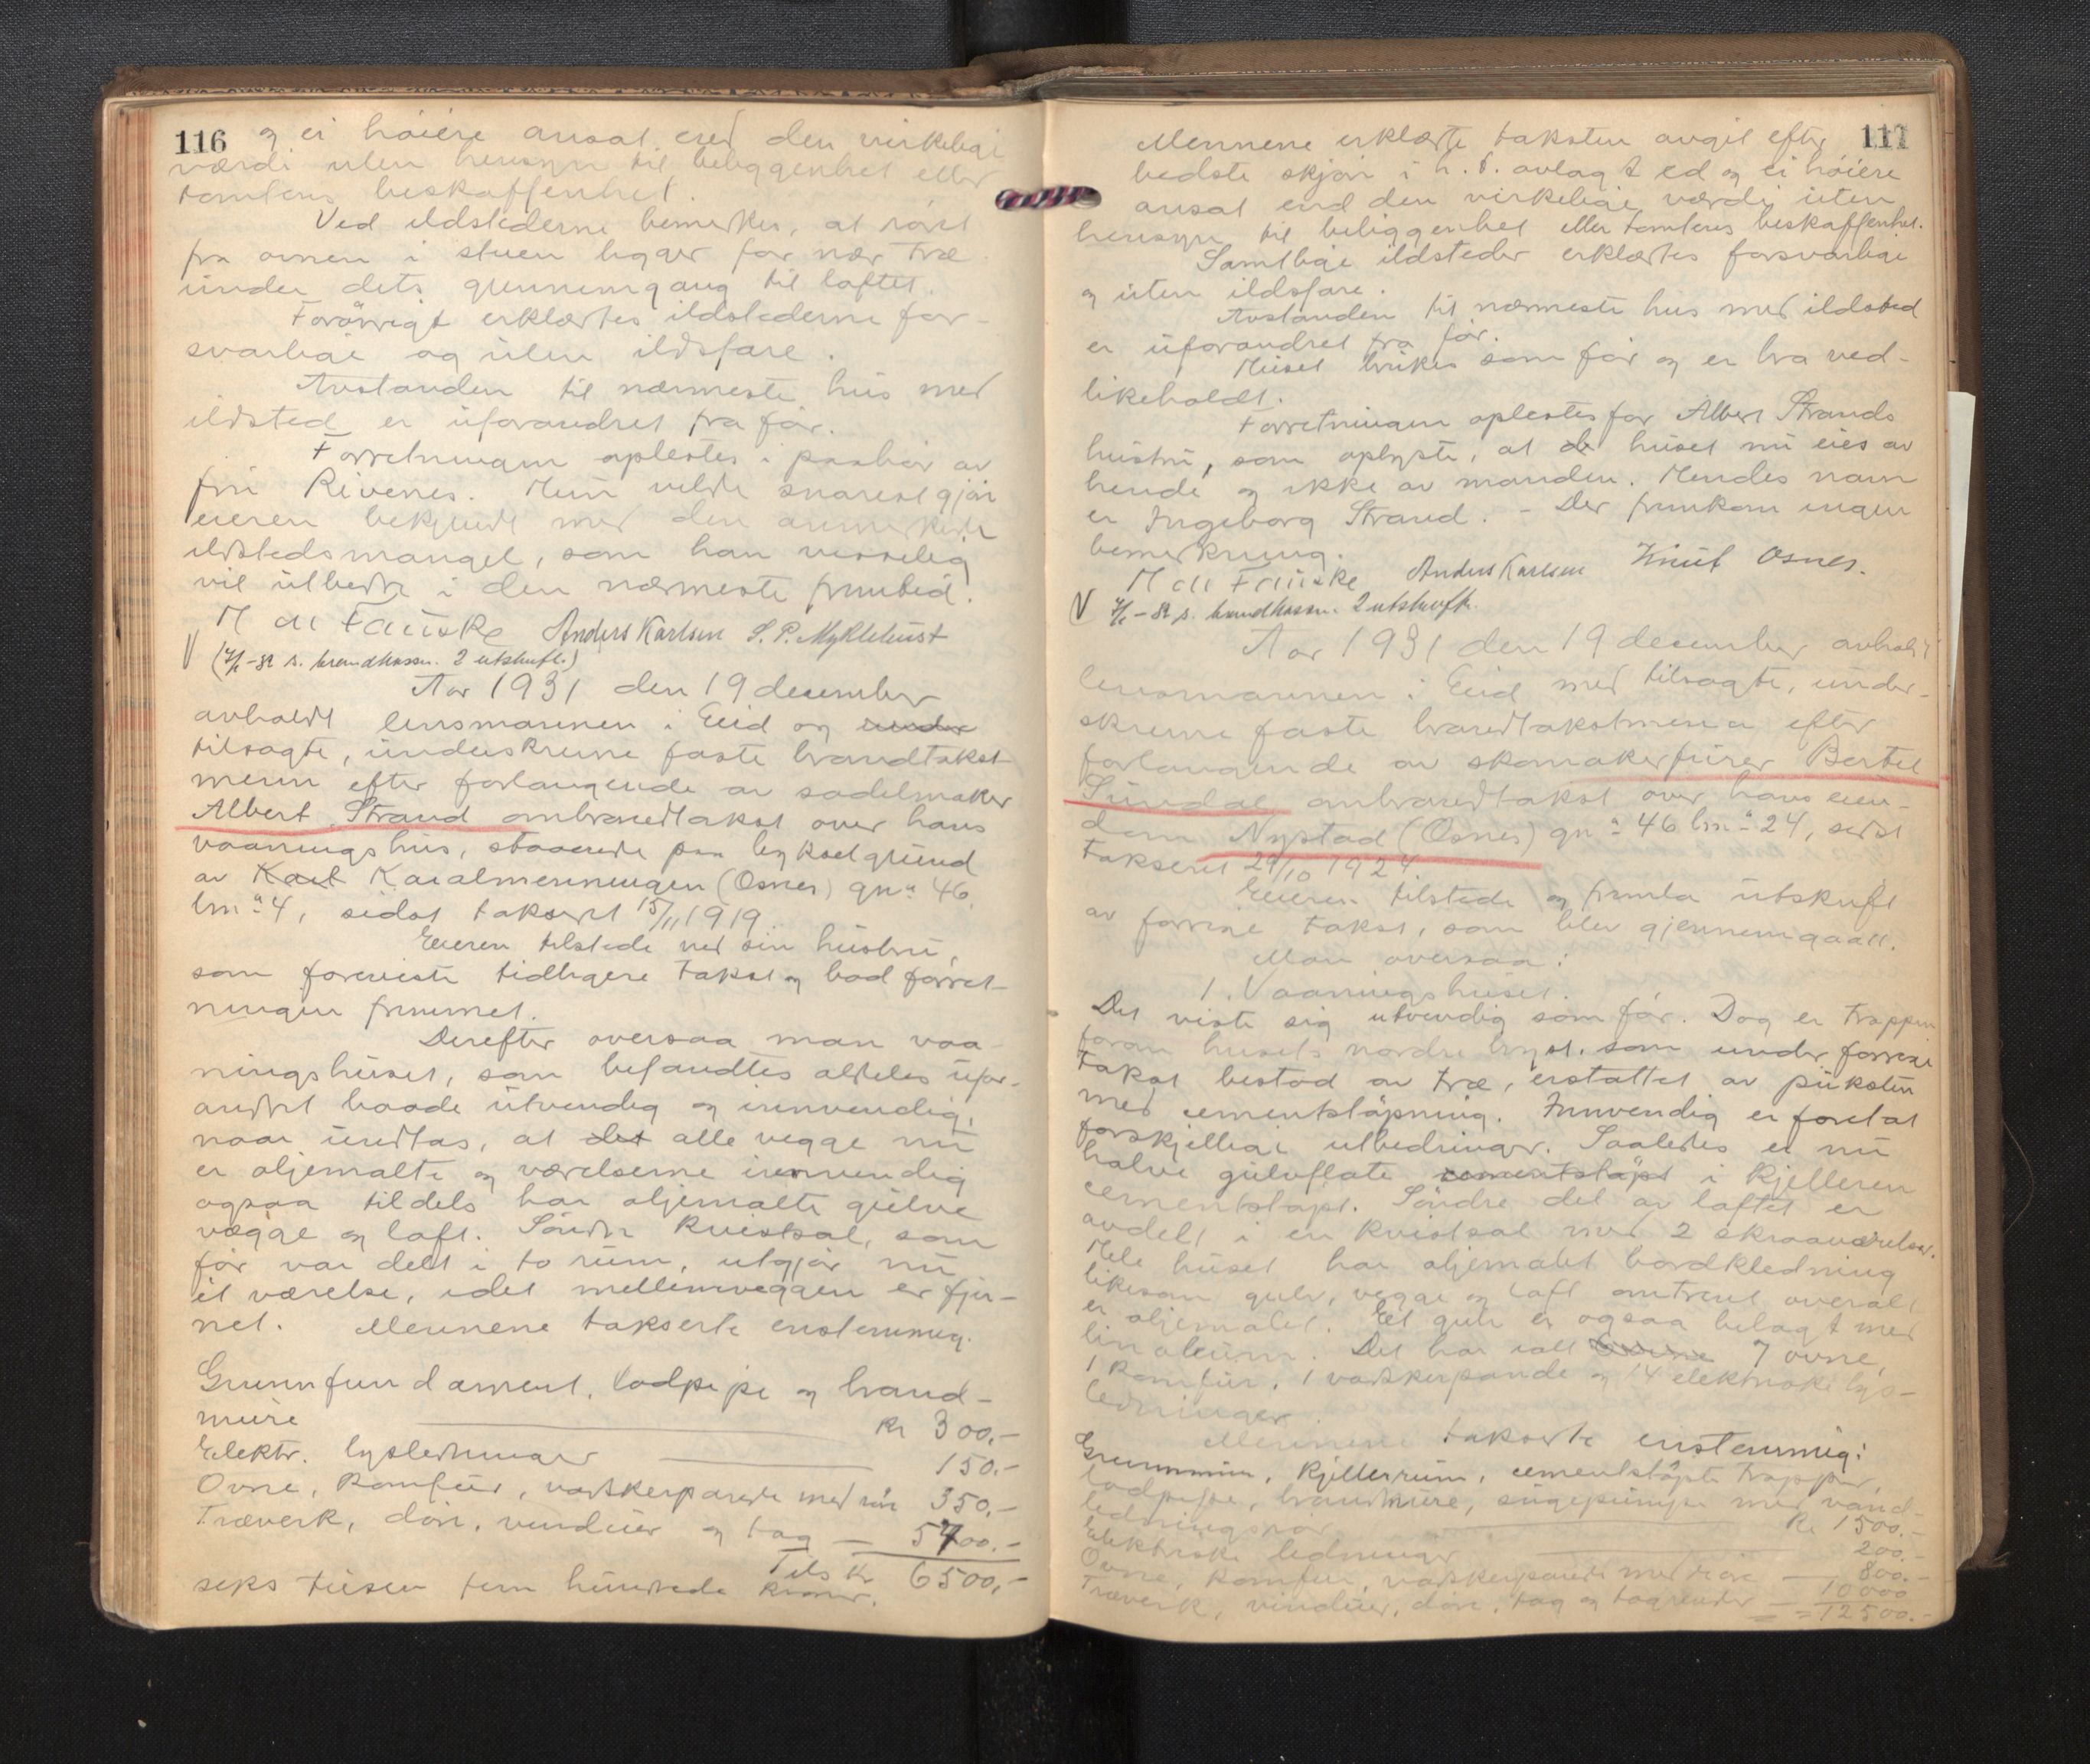 116 og ei høiere ansat end den virkelige
værdi uten hensyn til beliggenhet eller
tomtens beskaffenhet.
Ved ildstederne bemerkes, at røret
fra ovnen i stuen ligger for nær træ
under dets gjennemgang til loftet.
Forøvrigt erklærtes ildstederne for-
svarlige og uten ildsfare.
Avstanden til nærmeste hus med
ildsted er uforandret fra før.
Forretningen oplestes i paahør av
fru Rivenes. Hun vilde snarest gjøre
eieren bekjendt med den anmerkede
ildstedsmangel, som han visselig
vil utbedre i den nærmeste fremtid.
M au Fauske Anders Karlsen S. P. Myklebust
V (7/1-32 s. brandkassen. 2 utskrift.)
Aar 1931 den 19 december
avholdt lensmannen i Eid og undre
tilsagte, underskrevne faste brandtakst
menn efter forlangende av sadelmaker
Albert Strand ombrandtakst over hans
vaaningshus, staaende paa bykselgrund
av Kail Kaialmenningen (Osnes) gn. 46,
bn. 4, sidst taksert 15/11 1919.
Eieren tilstede ved sin hustru,
som foreviste tidligere takst og bad forret-
ningen fremmet.
Derefter oversaa man vaa-
ningshuset, som befandtes aldeles ufor-
andret baade utvendig og innvendig,
naar undtas, at det alle vegge nu
er oljemalte og værelserne innvendig
ogsaa tildels har oljemalte gulve
vægge og loft. Søndre kvistsal, som
før var delt i to rum, utgjør nu
et værelse, idet mellemveggen er fjer-
net. Mennene takserte enstemmig.
Grunnfundament, lodpipe og brand-
mure kr 300.-
Elektr. lysledninger 150.-
Ovne, komfur, vaskerpande med rør 350.-
Træverk, døre, vinduer og tag — 5700.-
Tils kr 6500,-
seks tusen fem hundrede kroner.
Mennene erklærte taksten avgit efter 117
bedste skjøn i h. t. avlagt ed og ei høiere
ansat end den virkelige værdi uten
hensyn til beliggenhet eller tomtens beskaffenhet.
Samtlige ildsteder erklærtes forsvarlige
og uten ildsfare.
Avstanden til nærmeste hus med ildsted
er uforandret fra før.
Huset brukes som før og er bra ved-
likeholdt.
Forretningen oplestes for Albert Strands
hustru, som oplyste, at de huset nu eies av
hende og ikke av manden. Hendes navn
er Ingeborg Strand. - Der fremkom ingen
bemerkning.
M au Fauske Anders Karlsen Knut Osnes.
V 7/1-32 s. brandkassen. 2 utskrift.
Aar 1931 den 19 december avholdt
lensmannen i Eid med tilsagte, under-
skrevne faste brandtakstmenn efter
forlangende av skomakerfurer Bertel
Sundal ombrandtakst over hans eien-
dom Nystad (Osnes) gn. 46 bn. 24, sidst
taksert 29/10 1924.
Eieren tilstede og fremla utskrift
av forrige takst, som blev gjennemgaatt.
Man oversaa:
1. Vaaningshuset.
Det viste sig utvendig som før. Dog er trappen
foran husets nordre bryst, som under forrige
takst bestod av træ, erstattet av puksten
med cementstøpning. Innvendig er foretat
forskjellige utbedringer. Saaledes er nu
halve gulvflate cementstøpt i kjelleren
cementstøpt. Søndre del av loftet er
avdelt i en kvistsal med 2 skraaværelser.
Hele huset har oljemalet bordkledning
likesom gulv, vegge og loft omtrent overalt
er oljemalet. Et gulv er ogsaa belagt med
linoleum. Det har ialt 7 ovne,
1 komfur, 1 vaskerpande og 14 elektriske lys-
ledninger.
Mennene takserte enstemmig:
Grunnmur, kjellerrum, cementstøpte trapper,
lodpipe, brandmure, sugepumpe med vand-
ledningsrør kr 1500.-
Elektriske ledninger 200.-
Ovne, komfur, vaskerpande med rør — 800.-
Træverk, vinduer, døre, tag og tagrender — 10 000
= = 12500.-